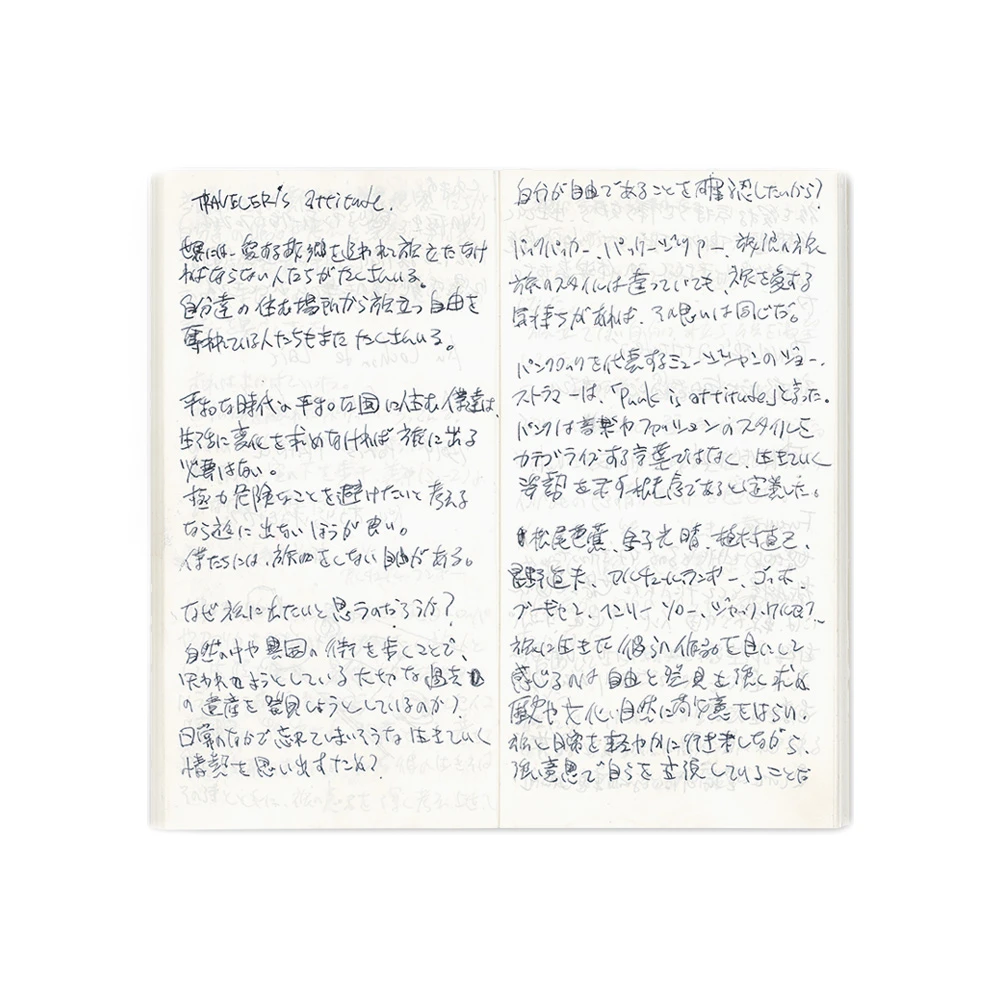 TRAVELER's attitude.
世界には、愛する故郷を追われて旅立たなけ
ればならない人たちがたくさんいる。
自分達の住む場所から旅立つ自由を
奪われている人たちもまたたくさんいる。
平和な時代の平和な国に住む僕達は、
生活に変化を求めなければ旅に出る
必要はない。
極力危険なことを避けたいと考える
なら旅に出ないほうが良い。
僕たちには、旅をしない自由がある。
なぜ旅に出たいと思うのだろうか?
自然の中や異国の街を歩くことで、
失われようとしている大切な過去
の遺産を発見しようとしているのか?
日常のなかで忘れてしまいそうな生きていく
情熱を思い出すため?
自分が自由であることを確認したいから?
バックパッカー、パッケージツアー、放浪の旅
旅のスタイルは違っていても、旅を愛する
気持ちがあれば、その思いは同じだ。
パンクロックを代表するミュージシャンのジョー・
ストラマーは、「Punk is attitude」と言った。
パンクは音楽やファッションのスタイルを
カテゴライズする言葉ではなく、生きていく
姿勢を示す概念であると定義した。
松尾芭蕉、金子光晴、植村直己、
星野道夫、アルチュール・ランボー、ゴッホ、
ゴーギャン、ヘンリー・ソロー、ジャック・ケルアック、
旅に生きた彼らの作品を目にして
感じるのは自由と発見を強く求め
歴史や文化、自然に敬意をはらい、
旅と日常を軽やかに行き来しながら、
強い意思で自らを主張していることだ